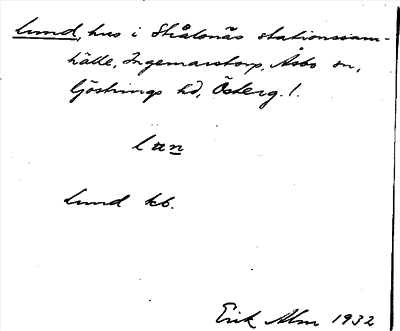 Lund, hus i Strålsnäs stationssam-
hälle, Ingemarstorp, Åsbo sn,
Göstrings hd, Österg. l.
lun
Lund kb.
Erik Alm 1932